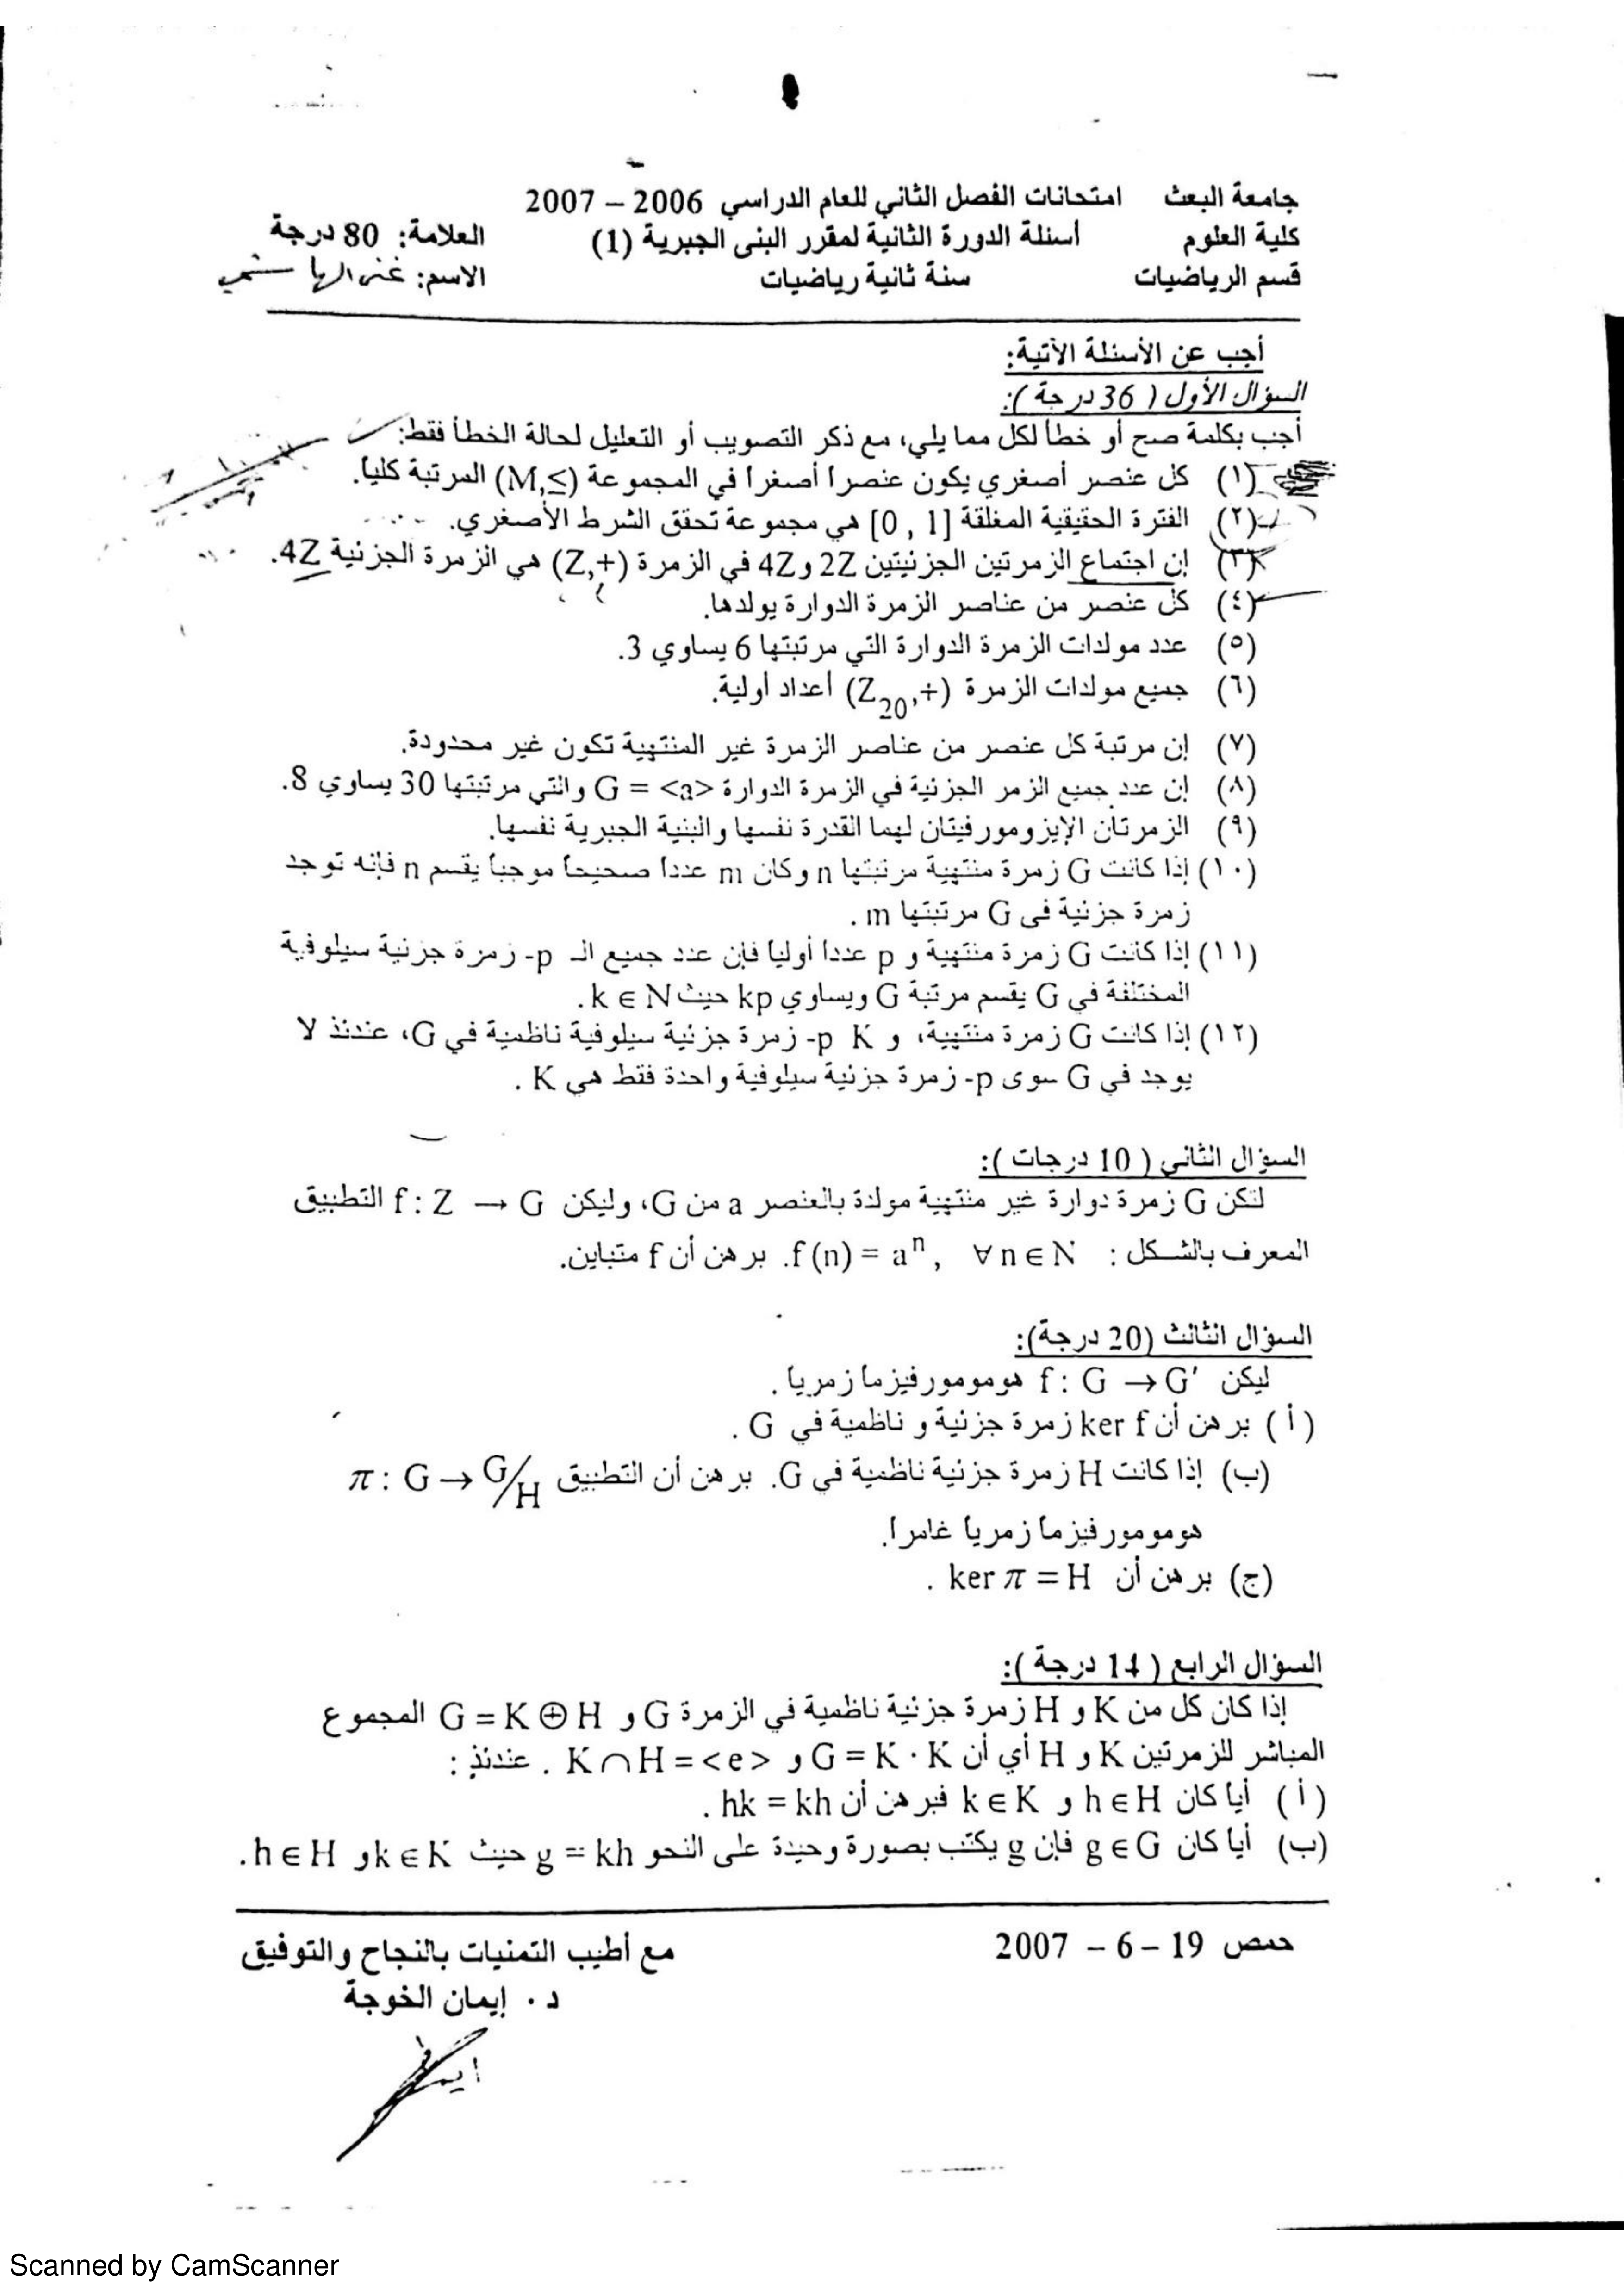 جامعة البعث امتحانات الفصل الثاني للعام الدراسي 2006 – 2007
كلية العلوم أسئلة الدورة الثانية لمقرر البنى الجبرية (1) العلامة: 80 درجة
قسم الرياضيات سنة ثانية رياضيات الاسم:
أجب عن الأسئلة الآتية:
السؤال الأول ( 36 درجة ):
أجب بكلمة صح أو خطأ لكل مما يلي، مع ذكر التصويب أو التعليل لحالة الخطأ فقط:
(١) كل عنصر أصغري يكون عنصرا أصغرا في المجموعة (M,≤) المرتبة كلياً.
(٢) الفترة الحقيقية المغلقة [0 , 1] هي مجموعة تحقق الشرط الأصغري.
(٣) إن اجتماع الزمرتين الجزئيتين 2Z و 4Z في الزمرة (Z,+) هي الزمرة الجزئية 4Z.
(٤) كل عنصر من عناصر الزمرة الدوارة يولدها.
(٥) عدد مولدات الزمرة الدوارة التي مرتبتها 6 يساوي 3.
(٦) جميع مولدات الزمرة (Z₂₀,+) أعداد أولية.
(٧) إن مرتبة كل عنصر من عناصر الزمرة غير المنتهية تكون غير محدودة.
(٨) إن عدد جميع الزمر الجزئية في الزمرة الدوارة G = <a> والتي مرتبتها 30 يساوي 8.
(٩) الزمرتان الإيزومورفيتان لهما القدرة نفسها والبنية الجبرية نفسها.
(١٠) إذا كانت G زمرة منتهية مرتبتها n وكان m عددا صحيحا موجبا يقسم n فإنه توجد
زمرة جزئية في G مرتبتها m .
(١١) إذا كانت G زمرة منتهية و p عددا أوليا فإن عدد جميع الـ p- زمرة جزئية سيلوفية
المختلفة في G يقسم مرتبة G ويساوي kp حيث k ∈ N.
(١٢) إذا كانت G زمرة منتهية، و K p- زمرة جزئية سيلوفية ناظمية في G، عندئذ لا
يوجد في G سوى p- زمرة جزئية سيلوفية واحدة فقط هي K .
السؤال الثاني ( 10 درجات ):
لتكن G زمرة دوارة غير منتهية مولدة بالعنصر a من G، وليكن f : Z → G التطبيق
المعرف بالشكل : f (n) = aⁿ , ∀ n ∈ N. برهن أن f متباين.
السؤال الثالث (20 درجة):
ليكن f : G → G′ هومومورفيزما زمريا .
( أ ) برهن أن ker f زمرة جزئية و ناظمية في G .
(ب) إذا كانت H زمرة جزئية ناظمية في G. برهن أن التطبيق π : G → G/H
هومومورفيزما زمريا غامرا.
(ج) برهن أن ker π = H .
السؤال الرابع ( 14 درجة ):
إذا كان كل من K و H زمرة جزئية ناظمية في الزمرة G و G = K ⊕ H المجموع
المباشر للزمرتين K و H أي أن G = K · K و K ∩ H = <e> . عندئذ :
( أ ) أيا كان h ∈ H و k ∈ K فبرهن أن hk = kh .
(ب) أيا كان g ∈ G فإن g يكتب بصورة وحيدة على النحو g = kh حيث k ∈ K و h ∈ H.
حمص 19 – 6 – 2007 مع أطيب التمنيات بالنجاح والتوفيق
د . إيمان الخوجة
Scanned by CamScanner